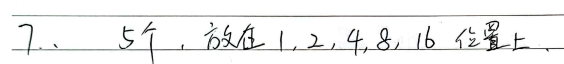 7.. 5个，放在1,2,4,8,16 位置上.